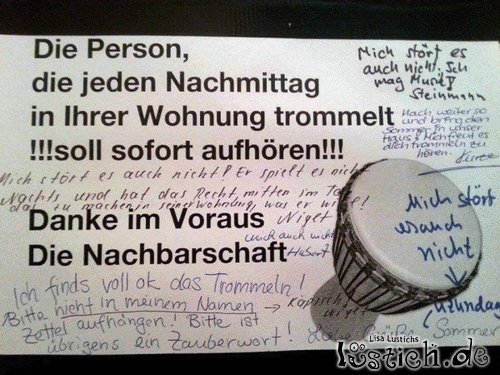 Die Person,
die jeden Nachmittag
in Ihrer Wohnung trommelt
!!!soll sofort aufhören!!!
Mich stört es
auch nicht. Ich
mag Musik
Steinmann
Mach weiter so
und bring den
Sommer in unser
Haus! Mich freut es
dich trommeln zu
hören.
Mich stört es auch nicht! Er spielt es nicht
Nachts und hat das Recht, mitten im Tag
das zu machen in seiner Wohnung, was er will!
Niget
Danke im Voraus
Die Nachbarschaft
mich auch nicht
Hubert
Mich stört
es auch
nicht
Ich finds voll ok das Trommeln!
Bitte nicht in meinem Namen → Kapisch,
Zettel aufhängen! Bitte ist
übrigens ein Zauberwort!
Liebe Grüße, Sommer
Lisa Lustichs
lustich.de